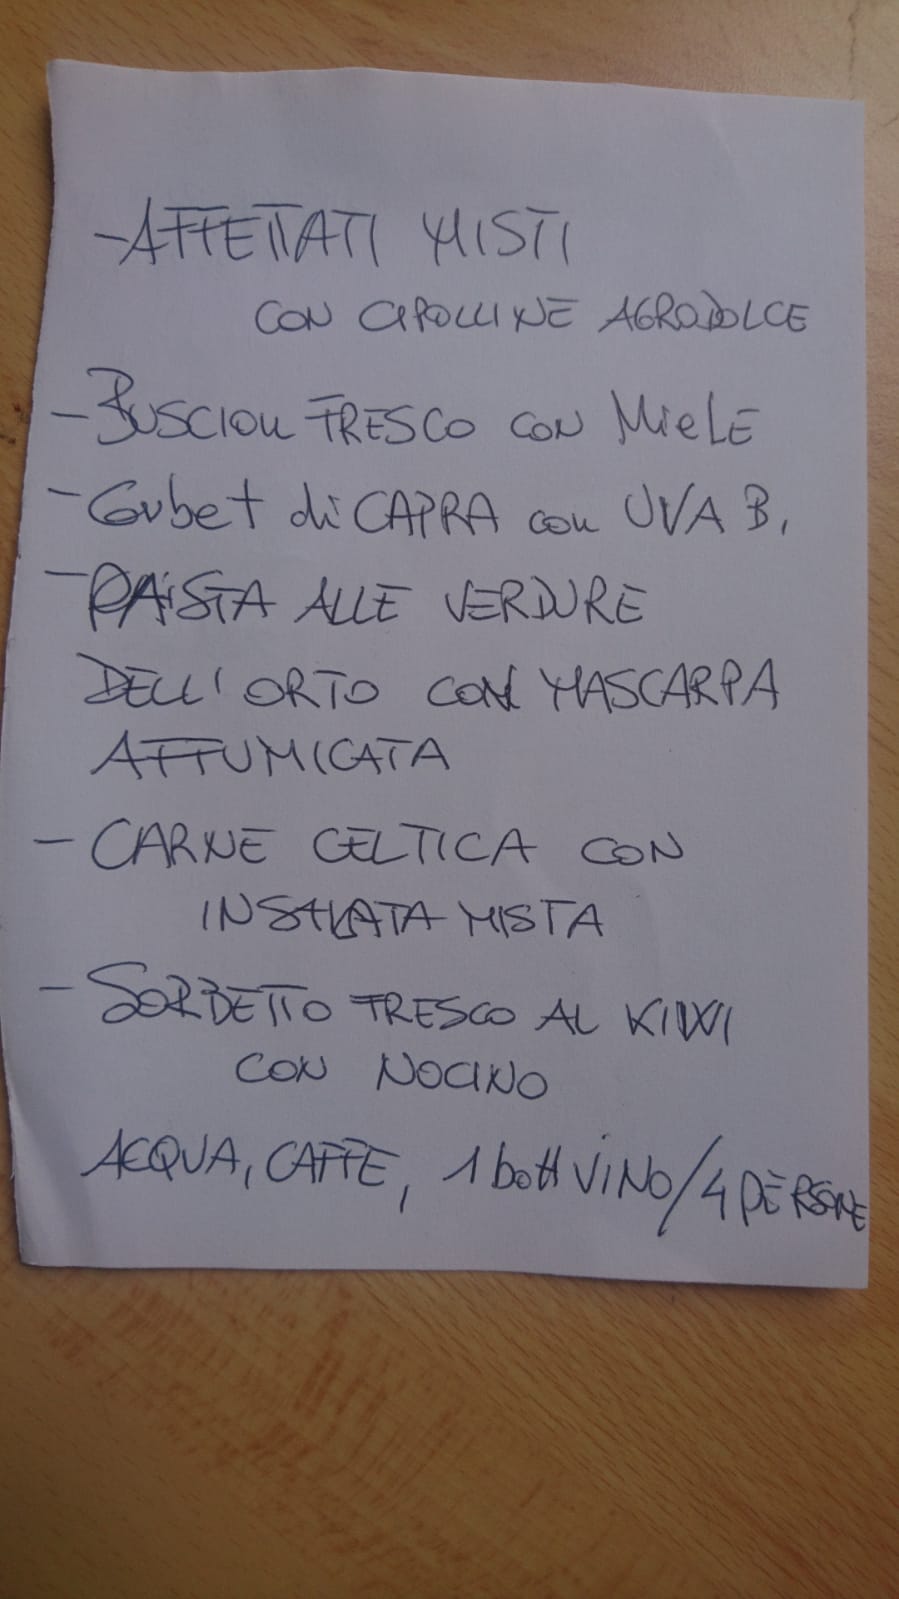 - AFFETTATI MISTI
CON CIPOLLINE AGRODOLCE
- BUSCION FRESCO CON MIELE
- Gubet di CAPRA con UVA B.
- PASTA ALLE VERDURE
DELL'ORTO CON MASCARPA
AFFUMICATA
- CARNE CELTICA CON
INSALATA MISTA
- SORBETTO FRESCO AL KIWI
CON NOCINO
ACQUA, CAFFÈ, 1 bott VINO/4 PERSONE